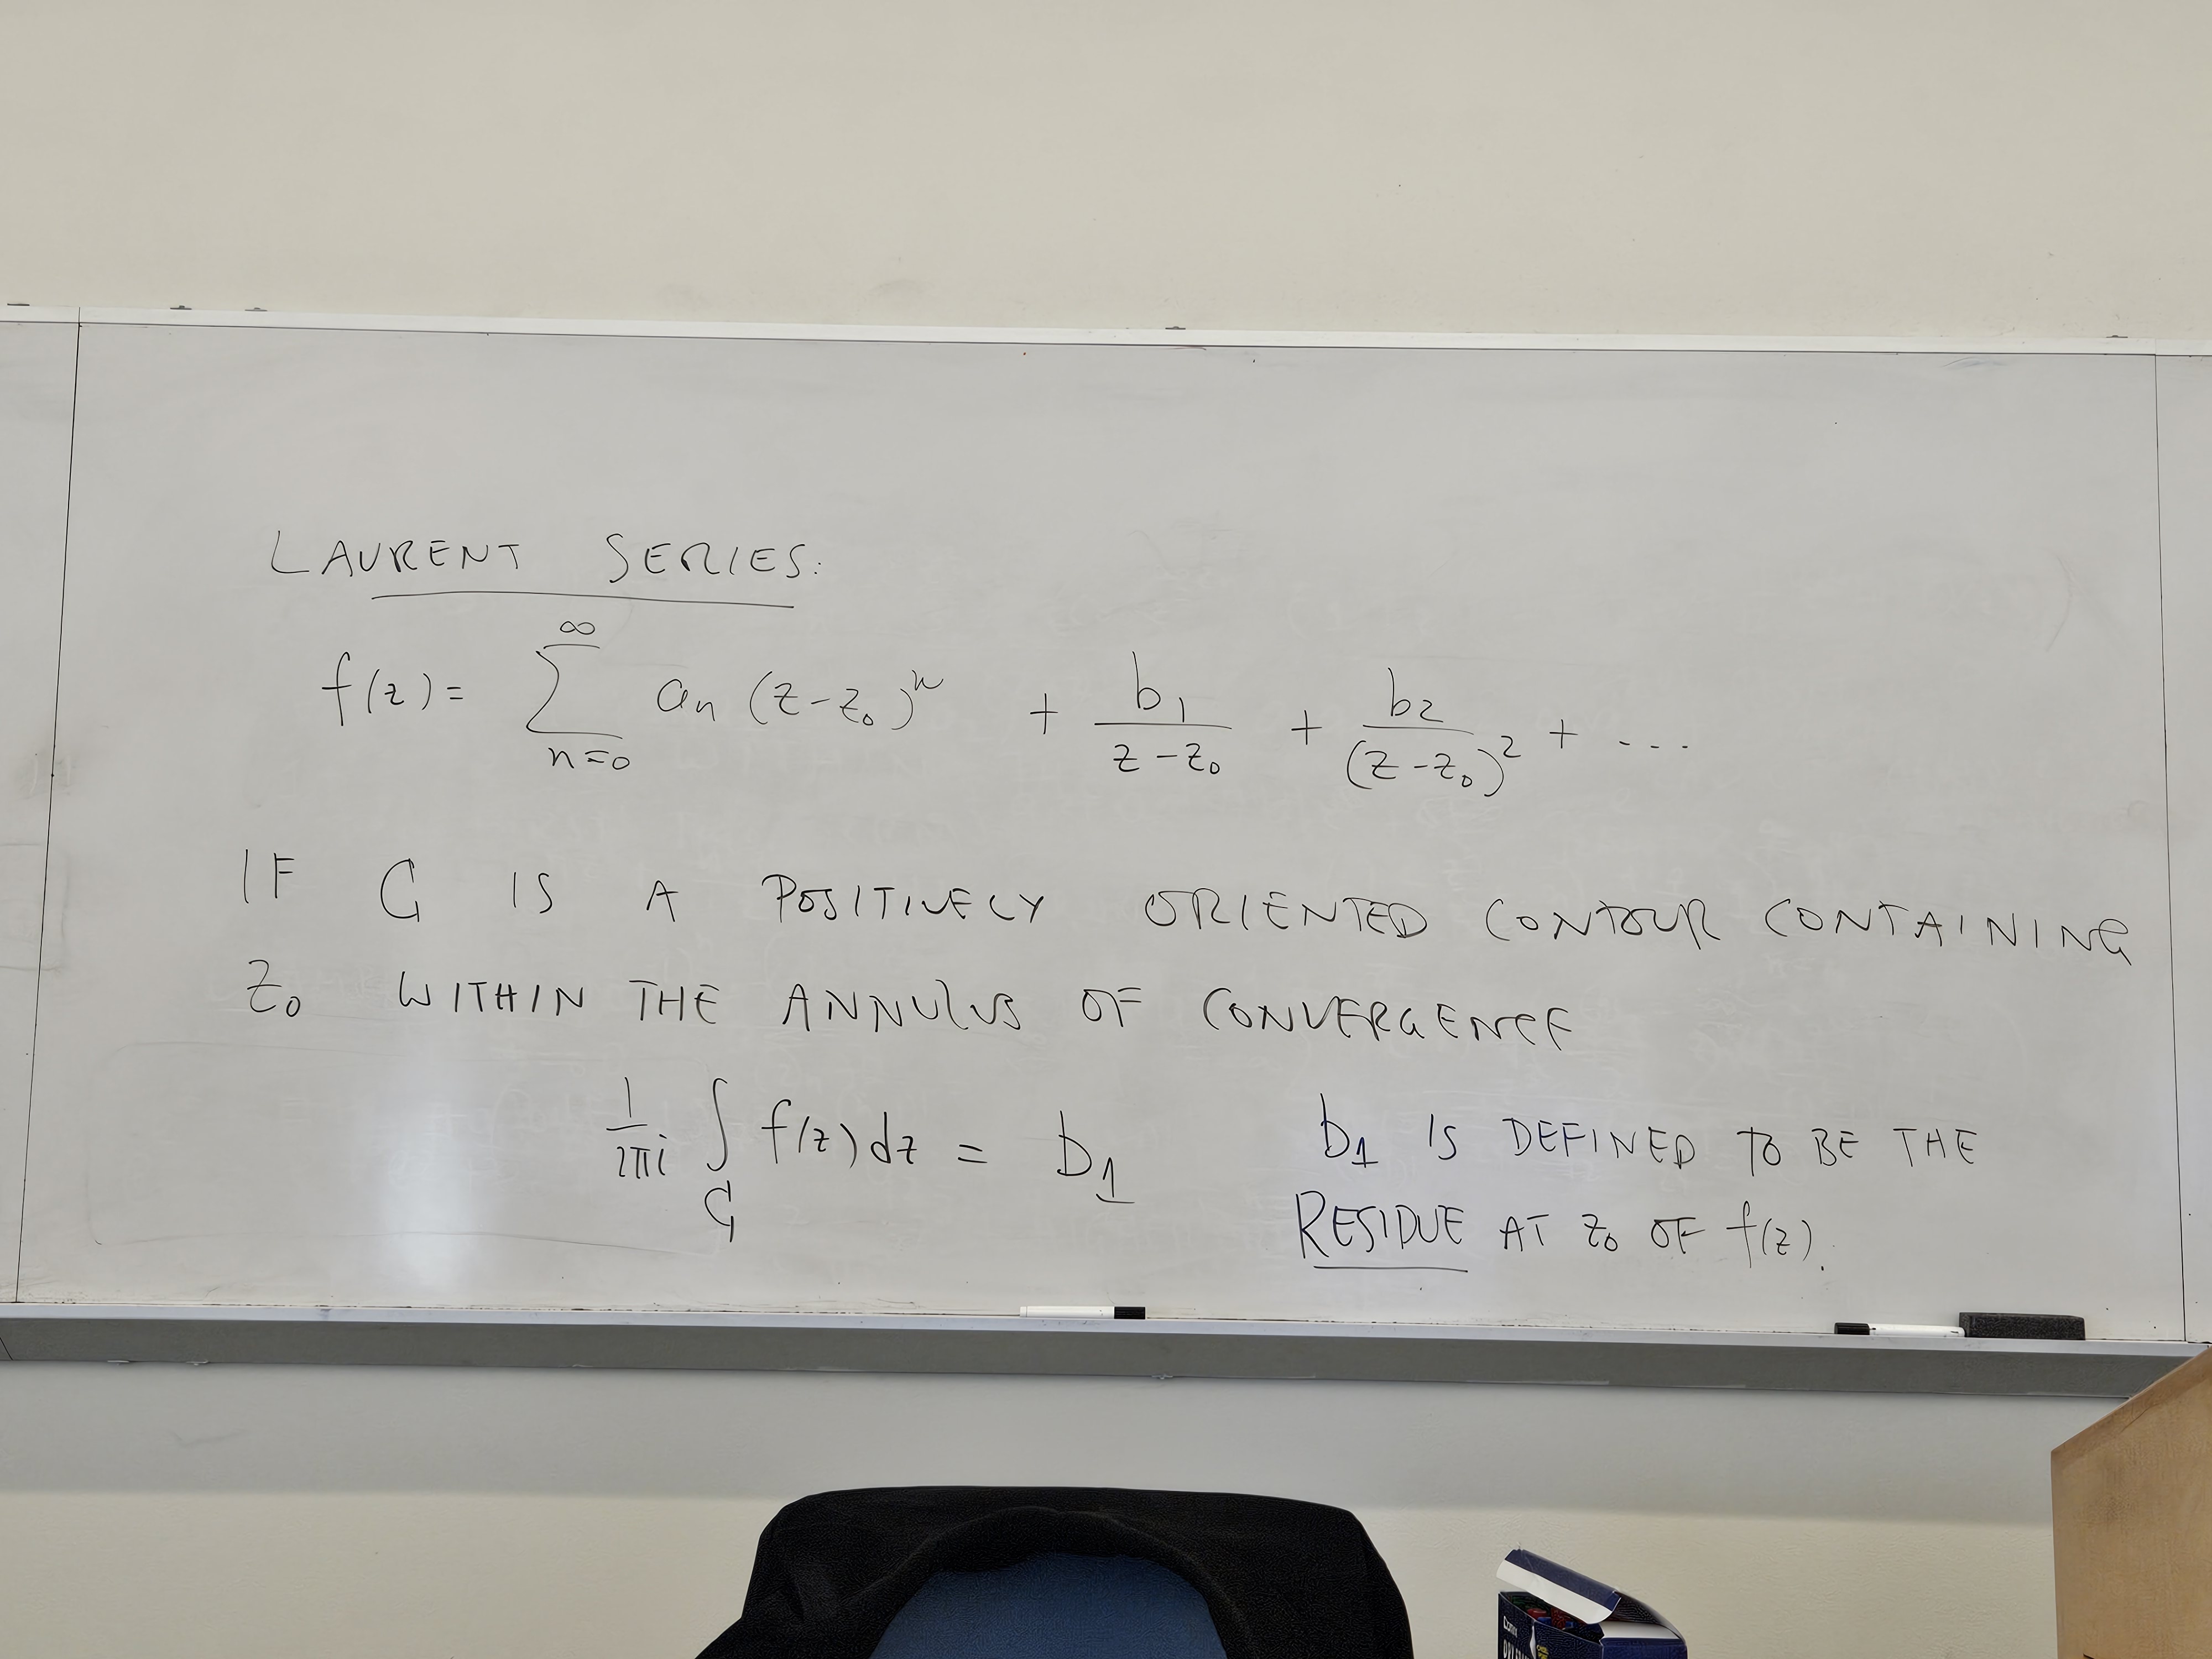 LAURENT SERIES:
f(z) = ∑_{n=0}^{∞} a_n (z-z_0)^n + b_1/(z-z_0) + b_2/(z-z_0)^2 + ...
IF C IS A POSITIVELY ORIENTED CONTOUR CONTAINING
z_0 WITHIN THE ANNULUS OF CONVERGENCE
1/(2πi) ∫_C f(z) dz = b_1
b_1 IS DEFINED TO BE THE
RESIDUE AT z_0 OF f(z).